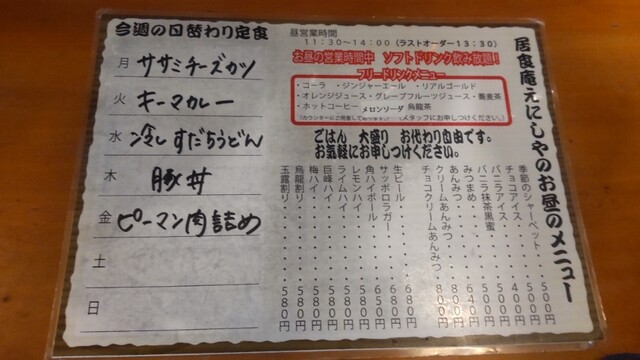 居食庵えにしやのお昼のメニュー
今週の日替わり定食
月 ササミチーズカツ
火 キーマカレー
水 冷しすだちうどん
木 豚丼
金 ピーマン肉詰め
土
日
昼営業時間
11:30~14:00(ラストオーダー13:30)
お昼の営業時間中 ソフトドリンク飲み放題!
フリードリンクメニュー
・コーラ ・ジンジャーエール ・リアルゴールド
・オレンジジュース・グレープフルーツジュース・蕎麦茶
・ホットコーヒー メロンソーダ 烏龍茶
スタッフにお申しつけください。)
ごはん 大盛り お代わり自由です。
お気軽にお申しつけください。
季節のシャーベット・・500円
チョコアイス・・・・400円
バニラアイス・・・・400円
バニラ抹茶黒蜜・・・500円
みつまめ・・・・・・640円
あんみつ・・・・・・
クリームあんみつ・・800円
チョコクリームあんみつ・
生ビール・・・・・・680円
サッポロラガー・・・680円
角ハイボール・・・・650円
レモンハイ・・・・・580円
ライムハイ・・・・・580円
巨峰ハイ・・・・・・580円
梅ハイ・・・・・・・580円
烏龍割り・・・・・・580円
玉露割り・・・・・・580円